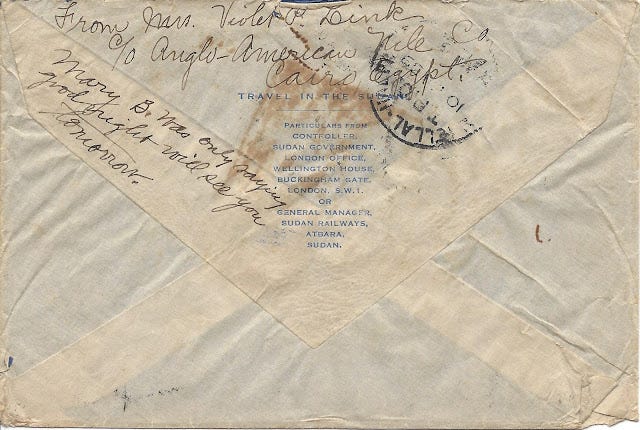 From Mrs. Violet P. Dink
c/o Anglo-American Nile Co
Cairo Egypt.
TRAVEL IN THE
PARTICULARS FROM
CONTROLLER,
SUDAN GOVERNMENT,
LONDON OFFICE,
WELLINGTON HOUSE,
BUCKINGHAM GATE,
LONDON, S.W.1.
OR
GENERAL MANAGER,
SUDAN RAILWAYS,
ATBARA,
SUDAN.
Mary B. was only saying
good night will see you
tomorrow.
T.P.O